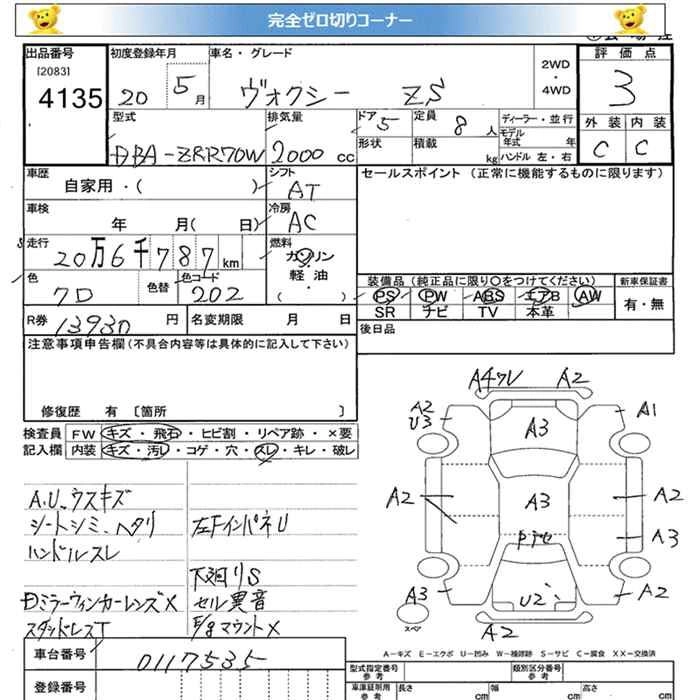 完全ゼロ切りコーナー
出品番号
[2083]
4135
初度登録年月
20 5月
車名・グレード
ヴォクシー ZS
2WD
・
4WD
評価点
3
外装 内装
C C
型式
DBA-ZRR70W
排気量
2000 cc
ドア 5
形状
定員 8人
積載 kg
ディーラー・並行
モデル年式 年
ハンドル 左・右
車歴
自家用・( )
シフト
AT
セールスポイント (正常に機能するものに限ります)
車検
年 月( 日)
冷房
AC
走行
20万6千787km
燃料
ガソリン
軽・油
( )
色
7D
色替
色コード
202
装備品 (純正品に限り○をつけてください)
新車保証書
PS PW ABS エアB AW
有・無
SR ナビ TV 本革
R券 13930 円
名変期限 月 日
後日品
注意事項申告欄(不具合内容等は具体的に記入して下さい)
修復歴 有 〔箇所 〕
検査員 FW キズ・飛石・ヒビ割・リペア跡・×要
記入欄 内装 キズ・汚レ・コゲ・穴・スレ・キレ・破レ
A4ワレ A2
A2
U3
A1
A3
A2
A3
A2
A3
A3
U2
A2
A2
スペア
A.U.ウスキズ
シートシミ、ヘタリ
ハンドルスレ
左FインパネU
下廻りS
ドミラーウィンカーレンズX
セル異音
スタッドレスT
E/gマウントX
A-キズ E-エクボ U-凹み W-補修跡 S-サビ C-腐食 XX-交換済
車台番号
0117535
登録番号
型式指定番号
参考
類別区分番号
参考
車庫証明用
参考
長さ cm
幅 cm
高さ cm